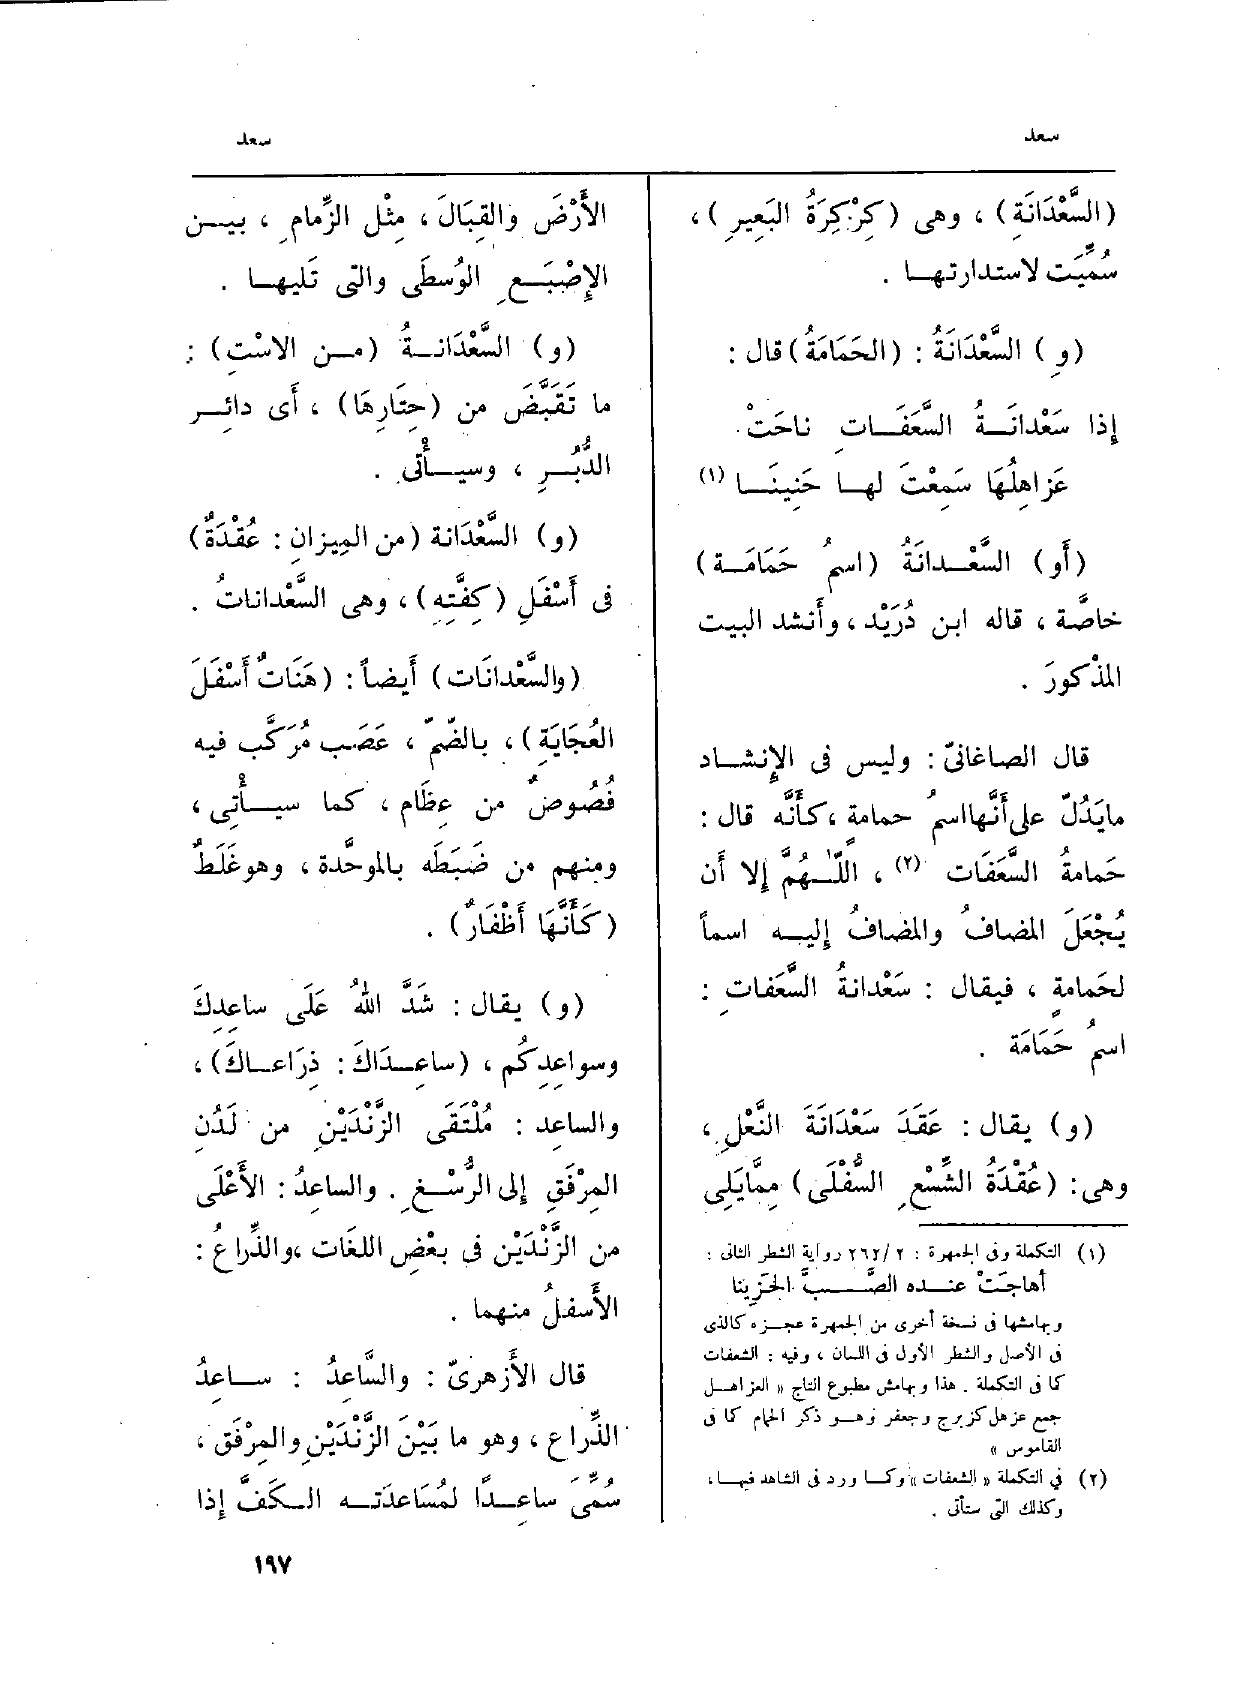 سعد
سعد
(السَّعْدَانَةِ) ، وهى (كِرْكِرَةُ البَعِيرِ) ،
سُمِّيَت لاستدارتهـا .
(و) السَّعْدَانَةُ : (الحَمَامَةُ) قال :
إذا سَعْدانَـةُ السَّعَفَـاتِ ناحَتْ
عَزاهِلُهَا سَمِعْتَ لهـا حَنِينَـا (١)
(أَو) السَّعْـدانَةُ (اسمُ حَمَامَـة)
خاصَّة ، قاله ابن دُرَيْد ، وأَنشد البيت
المذْكورَ .
قال الصاغانىّ : وليس فى الإِنشـاد
مايَدُلّ على أَنَّها اسمُ حمامةٍ ، كأَنَّه قال :
حَمامةُ السَّعَفَات (٢) ، اللّٰـهُمَّ إلا أَن
يُجْعَلَ المضافُ والمضافُ إليـه اسماً
لحَمامةٍ ، فيقال : سَعْدانةُ السَّعَفاتِ :
اسمُ حَمَامَةٍ .
(و) يقال : عَقَدَ سَعْدَانَةَ النَّعْلِ ،
وهى : (عُقْدَةُ الشِّسْعِ السُّفْلَى) مِمَّايَلِى
(١) التكملة وفى الجمهرة : ٢٦٢/٢ رواية الشطر الثانى :
أهاجَتْ عنـده الصَّـبَّ الحَزِينا
وبهامشها فى نسخة أخرى من الجمهرة عجـزه كالذى
فى الأصل والشطر الأول فى اللسان ، وفيه : الشعفات
كما فى التكملة . هذا وبهامش مطبوع التاج « العزاهـل
جمع عزهل كزبرج وجعفر وهـو ذكر الحمام كما فى
القاموس »
(٢) في التكملة « الشعفات » وكـا ورد فى الشاهد فيهـا ،
وكذلك التى ستأتى .
الأَرْضَ والقِبَالَ ، مِثْل الزِّمامِ ، بيـن
الإِصْبَـعِ الوُسطَى والتى تَليهـا .
(و) السَّعْدَانـةُ (مـن الاسْتِ) :
ما تَقَبَّضَ من (حِتَارِهَا) ، أَى دائـر
الدُّبُـرِ ، وسيـأْتى .
(و) السَّعْدَانة (من المِيزانِ : عُقْدَةٌ)
فى أَسْفَلِ (كِفَّتِهِ) ، وهى السَّعْداناتُ .
(والسَّعْدانَات) أَيضاً : (هَنَاتٌ أَسْفَلَ
العُجَايَةِ) ، بالضّمّ ، عَصَب مُرَكَّب فيه
فُصُوصٌ من عِظَام ، كما سيـأْتى ،
ومنهم من ضَبَطَه بالموحَّدة ، وهو غَلَطٌ
(كَأَنَّهَا أَظْفَارٌ) .
(و) يقال : شَدَّ اللهُ عَلَى ساعِدِكَ
وسواعِدِكُم ، (ساعِـدَاكَ : ذِرَاعـاكَ) ،
والساعِد : مُلْتَقَى الزَّنْدَيْنِ من لَدُنِ
المِرْفَقِ إلى الرُّسْـغِ . والساعِدُ : الأَعْلَى
من الزَّنْدَيْن فى بعْضِ اللغات ، والذِّراعُ :
الأَسفلُ منهما .
قال الأَزهرىّ : والسَّاعِدُ : سـاعِدُ
الذِّراعِ ، وهو ما بَيْنَ الزَّنْدَيْنِ والمِرْفَقِ ،
سُمِّىَ ساعِـدًا لمُسَاعَدَتـه الـكَفَّ إِذا
١٩٧